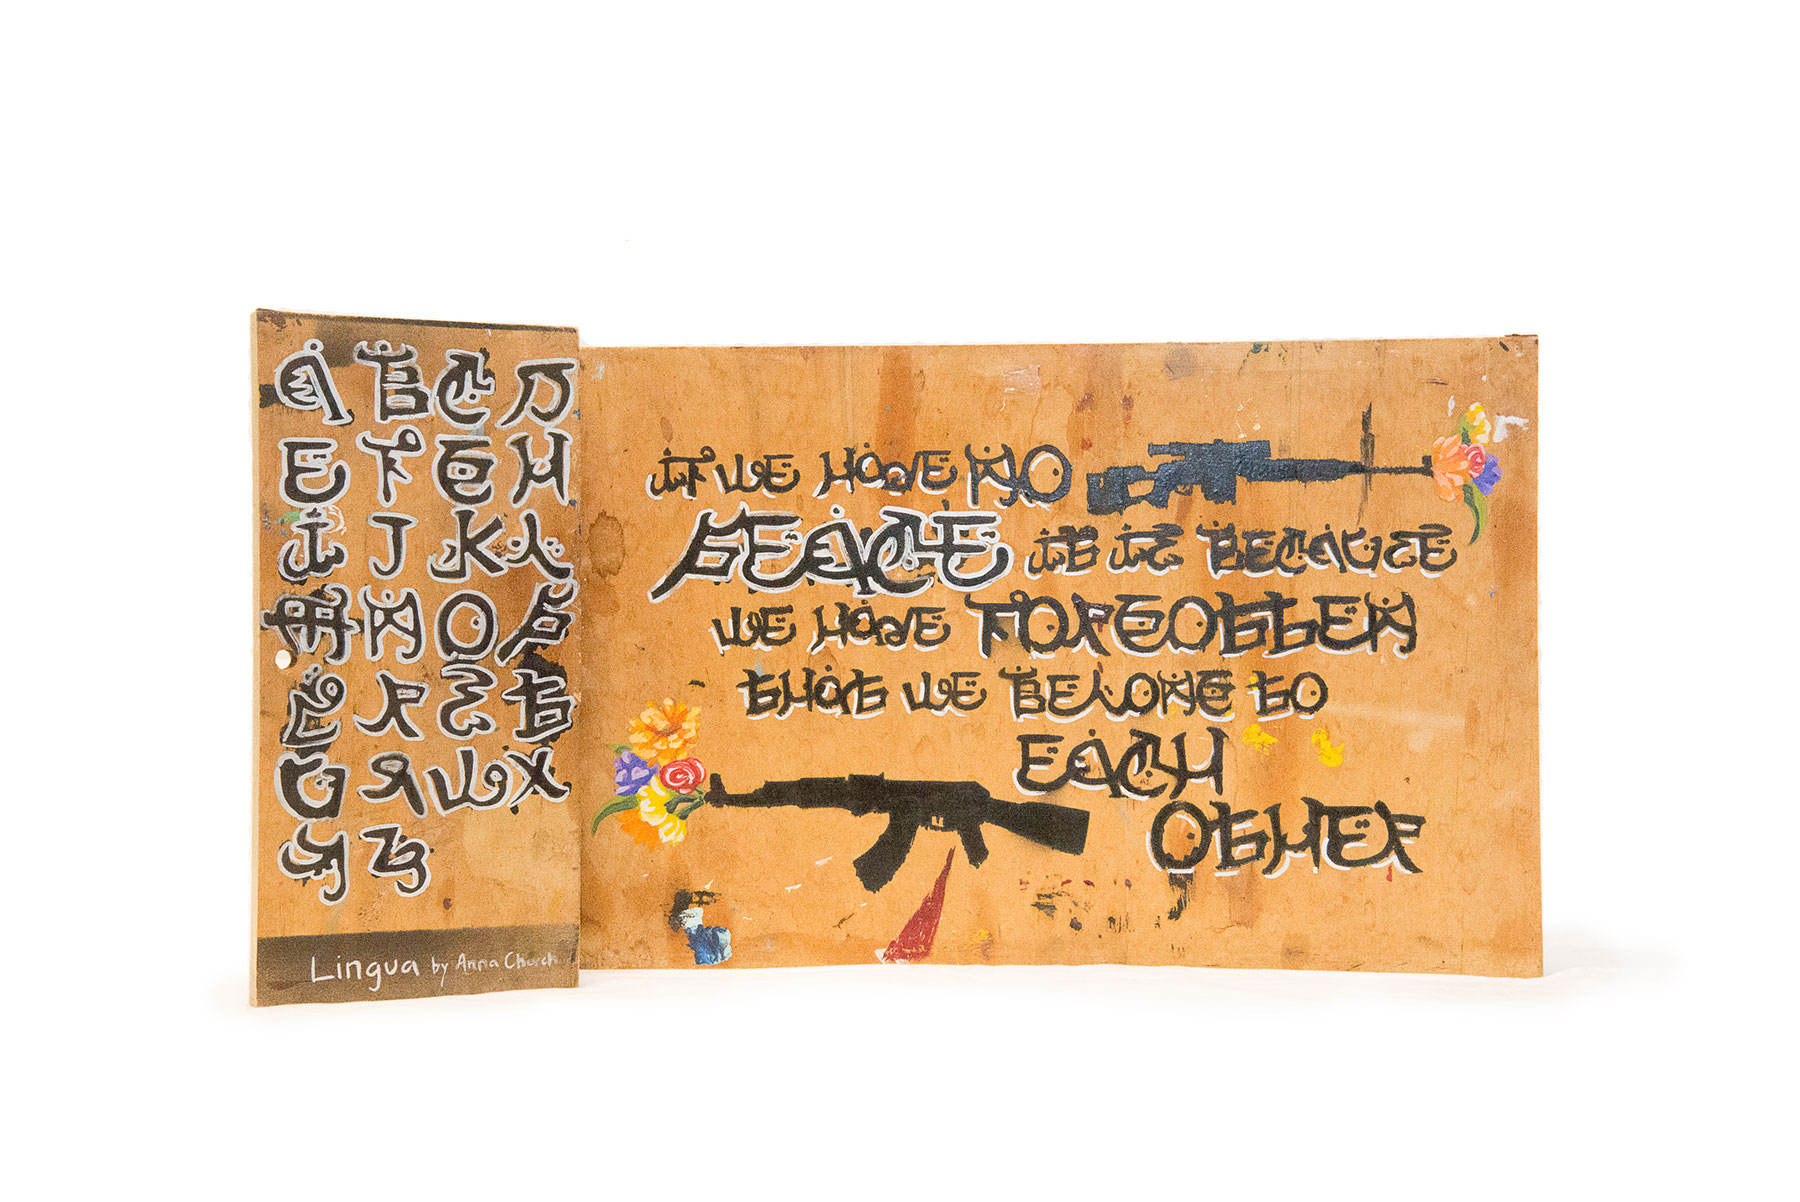 A B C D
E F G H
I J K L
M N O P
Q R S T
U V W X
Y Z
Lingua by Anna Church
IF WE HAVE NO
PEACE IT IS BECAUSE
WE HAVE FORGOTTEN
THAT WE BELONG TO
EACH
OTHER